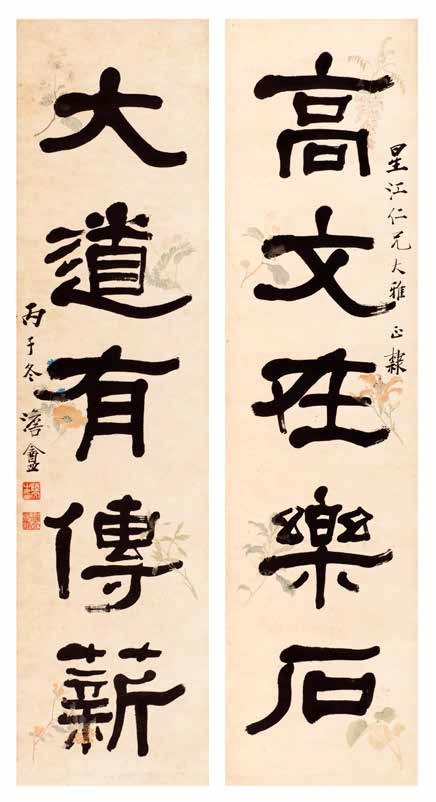 星江仁兄大雅 正隸
高文在樂石
大道有傳薪
丙子冬 澹盦